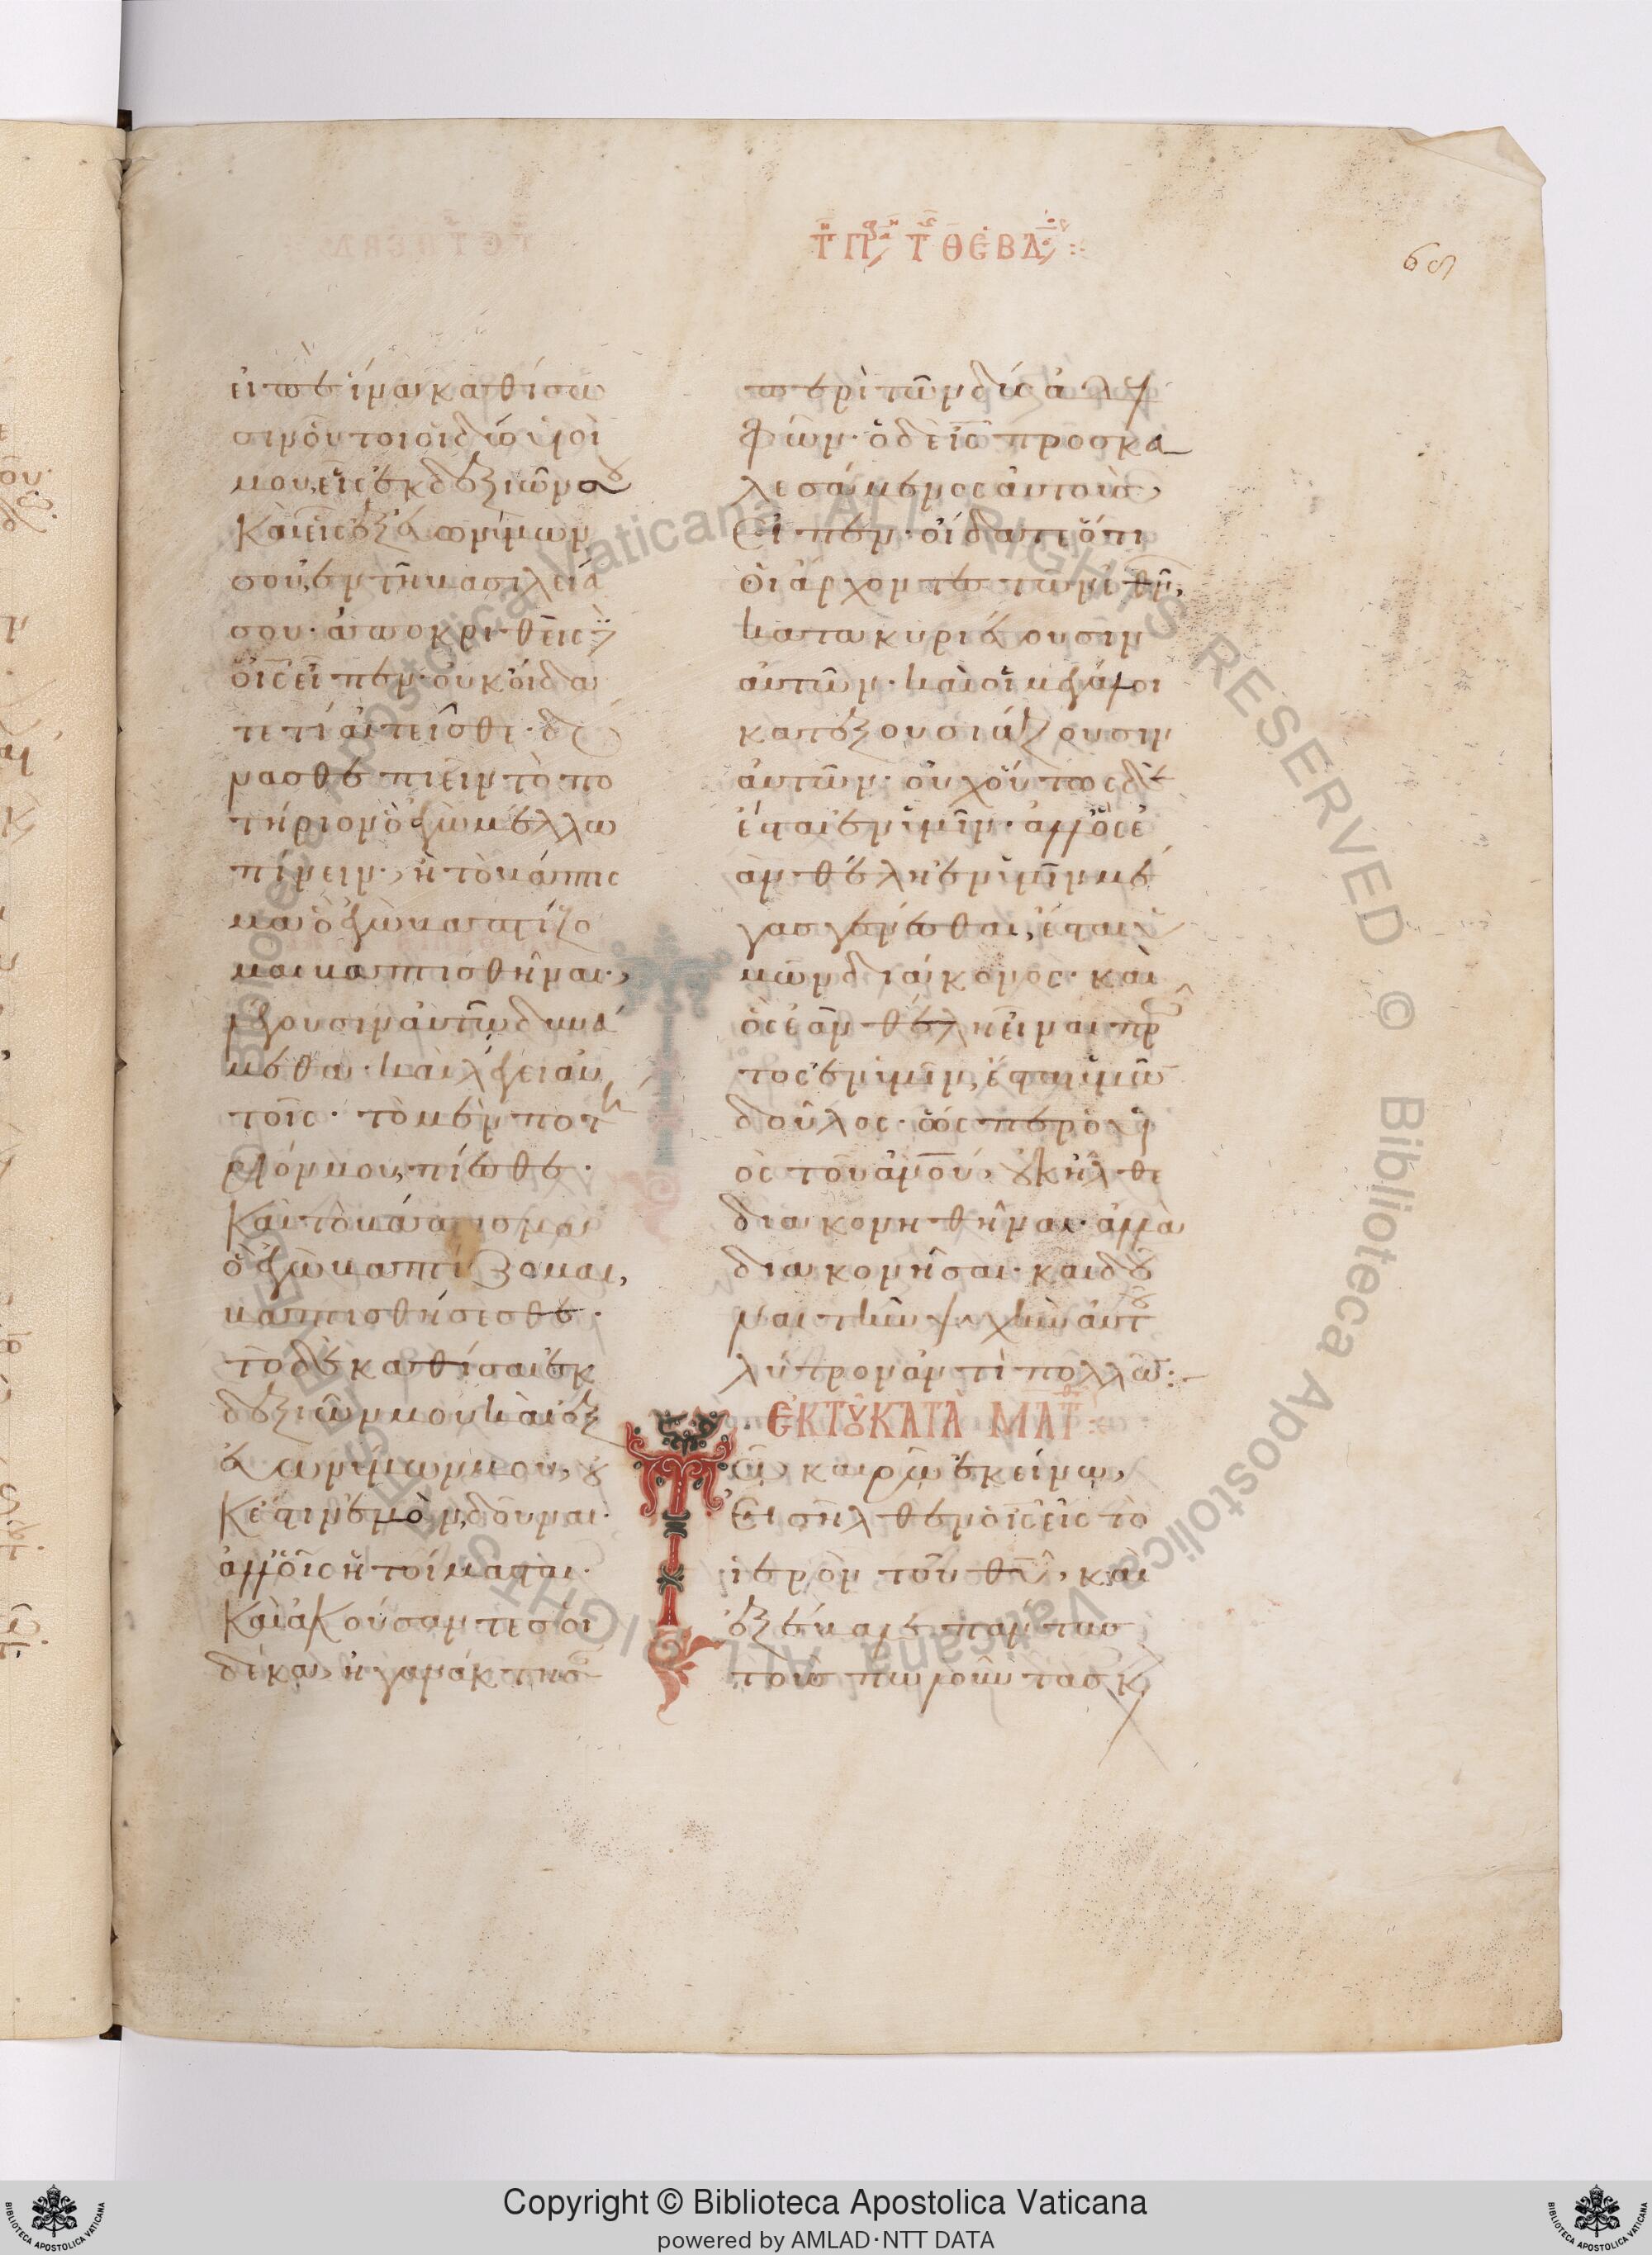 Τῇ Πα τῆς Θ ἑβδ
68
εἰπὲ ἵνα καθίσω
σιν οὗτοι οἱ δύο υἱοί
μου, εἷς ἐκ δεξιῶν σου
καὶ εἷς ἐξ εὐωνύμων
σου, ἐν τῆ βασιλεία
σου· ἀποκριθεὶς δὲ
ὁ ις εἶπεν· οὐκ οἴδα
τε τί αἰτεῖσθε· δύ
νασθε πιεῖν τὸ πο
τήριον ὃ ἐγὼ μέλλω
πίνειν· ἢ τὸ βάπτισ
μα ὃ ἐγὼ βαπτίζο
μαι βαπτισθῆναι·
λέγουσιν αὐτῶ δυνά
μεθα· καὶ λέγει αὐ
τοῖς· τὸ μὲν ποτή
ριόν μου, πίεσθε·
καὶ τὸ βάπτισμα
ὃ ἐγὼ βαπτίζομαι,
βαπτισθήσεσθε·
τὸ δὲ καθίσαι ἐκ
δεξιῶν μου καὶ ἐξ
εὐωνύμων μου, οὐ
κ ἔστιν ἐμὸν, δοῦναι·
ἀλλ' οἷς ἡτοίμασται·
καὶ ἀκούσαντες οἱ
δέκα, ἠγανάκτησαν
περὶ τῶν δύο ἀδελ
φῶν· ὁ δὲ ις προσκα
λεσάμενος αὐτοὺς,
εἶπεν· οἴδατε ὅτι
οἱ ἄρχοντες τῶν ἐθν,
κατακυριεύουσιν
αὐτῶν· καὶ οἱ μεγάλοι
κατεξουσιάζουσιν
αὐτῶν· οὐχ οὕτως δὲ
ἔσται ἐν ὑμῖν· ἀλλ' ὃς ἐ
ὰν θέλη ἐν ὑμῖν μέ
γας γενέσθαι, ἔσται ὑ
μῶν διάκονος· καὶ
ὃς ἐὰν θέλη εἶναι πρῶ
τος ἐν ὑμῖν, ἔσται ὑμῶν
δοῦλος· ὥσπερ ὁ υἱ
ὸς τοῦ ανου, οὐκ ἦλθε
διακονηθῆναι· ἀλλὰ
διακονῆσαι· καὶ δοῦ
ναι τὴν ψυχὴν αὐτοῦ
λύτρον ἀντὶ πολλῶν:
ἘΚ ΤΟΥ ΚΑΤᾺ ΜΑΤΘ
Τῶ καιρῶ ἐκείνω,
Εἰσῆλθεν ὁ ις εἰς τὸ
ἱερὸν τοῦ θυ, καὶ
ἐξέβαλε πάντας
τοὺς πωλοῦντας κ
Copyright © Biblioteca Apostolica Vaticana
powered by AMLAD·NTT DATA
Biblioteca Apostolica Vaticana ALL RIGHTS RESERVED © Biblioteca Apostolica Vaticana ALL RIGHTS RESERVED ©
BIBLIOTECA APOSTOLICA VATICANA
BIBLIOTECA APOSTOLICA VATICANA